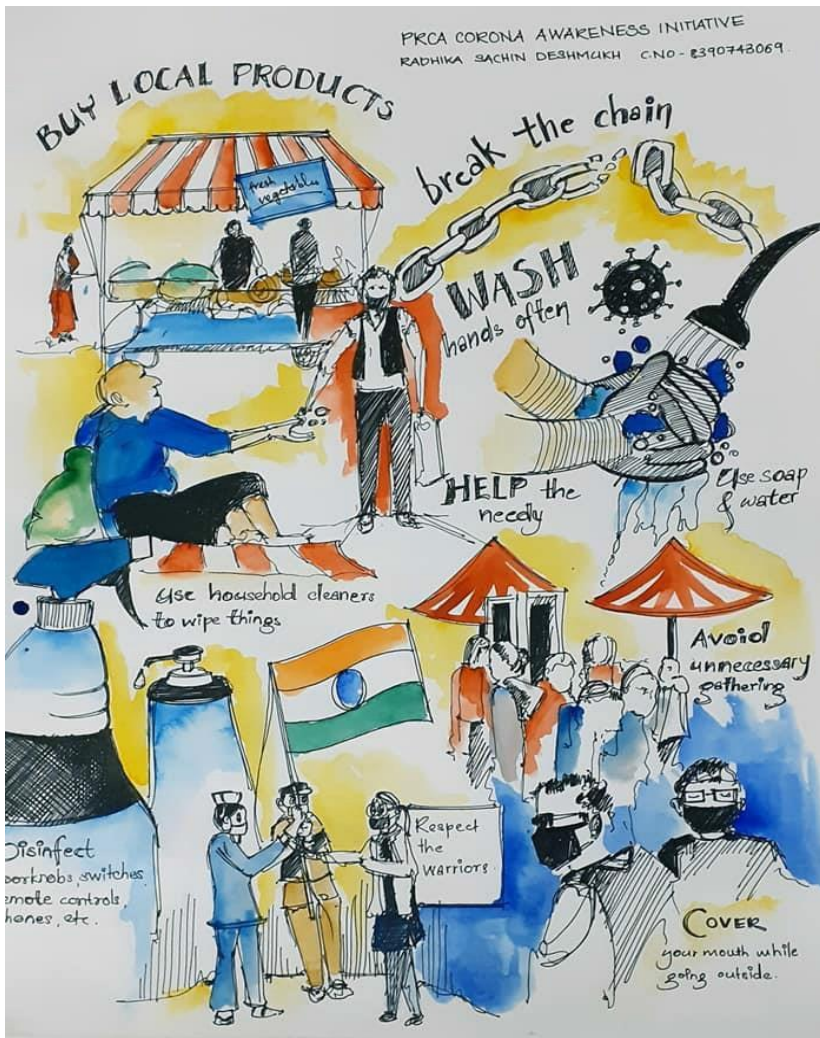 PRCA CORONA AWARENESS INITIATIVE
RADHIKA SACHIN DESHMUKH C.NO - 8390743069.
BUY LOCAL PRODUCTS
fresh
vegetables
break the chain
WASH
hands often
Use soap
& water
HELP the
needy
Use household cleaners
to wipe things
Avoid
unnecessary
gathering
Disinfect
oorknobs, switches,
emote controls,
hones, etc.
Respect
the
WARRIORS.
COVER
your mouth while
going outside.